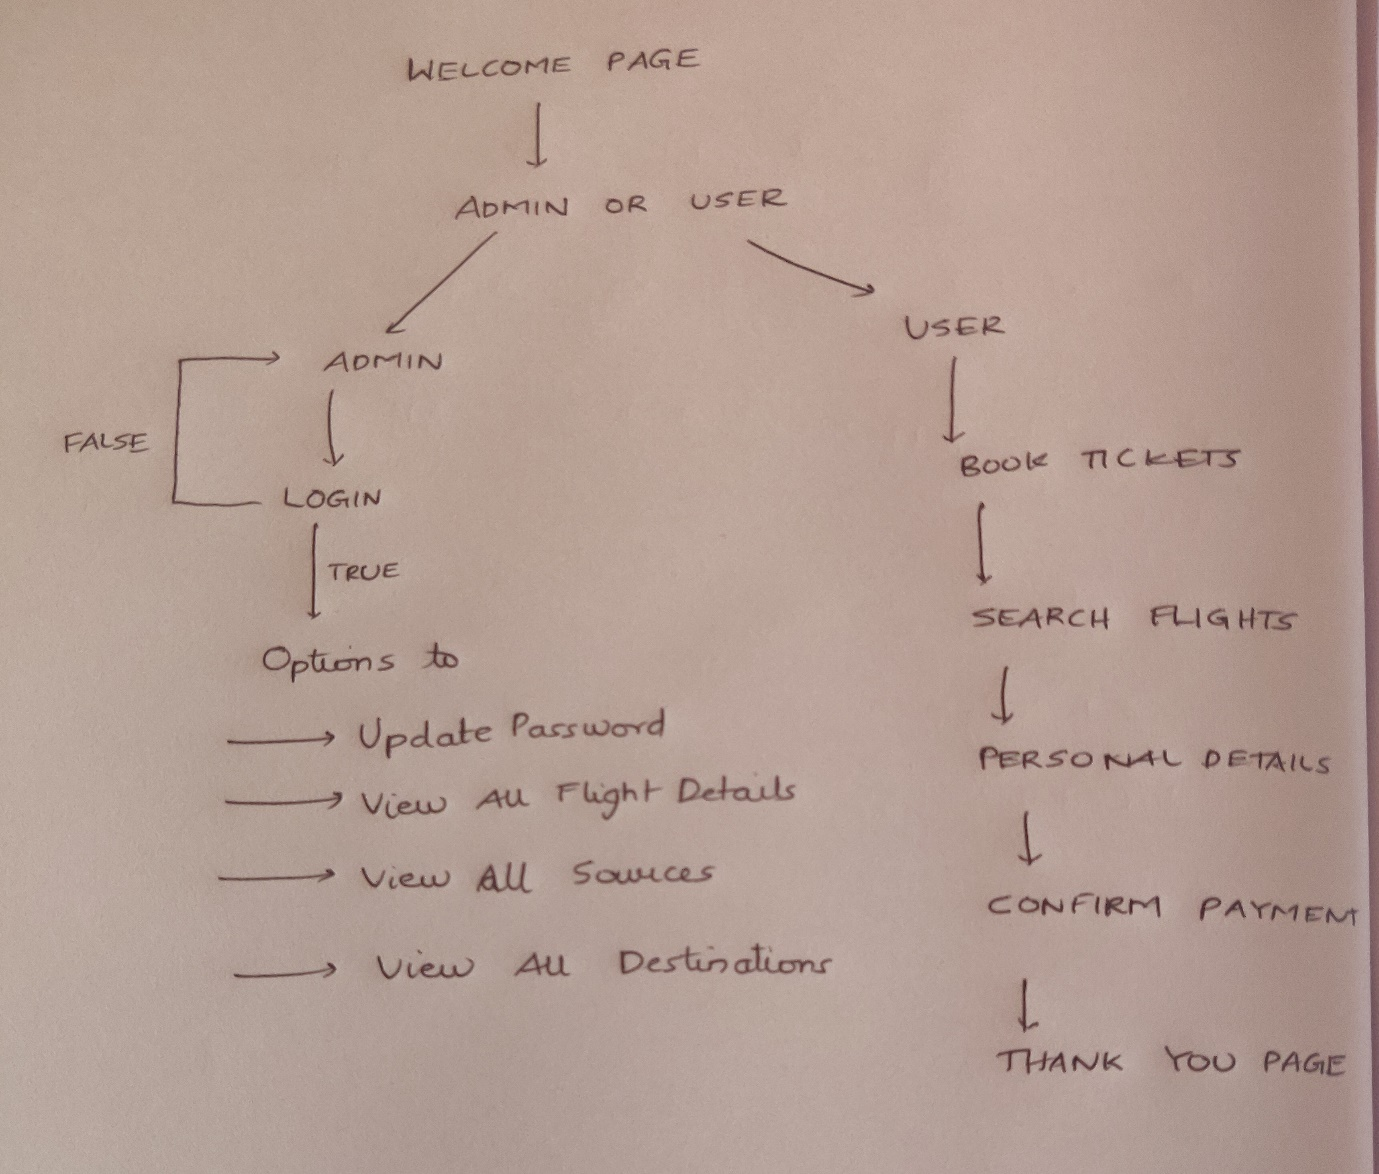 WELCOME PAGE
ADMIN OR USER
ADMIN
FALSE
LOGIN
TRUE
Options to
Update Password
View All Flight Details
View All Sources
View All Destinations
USER
BOOK TICKETS
SEARCH FLIGHTS
PERSONAL DETAILS
CONFIRM PAYMENT
THANK YOU PAGE